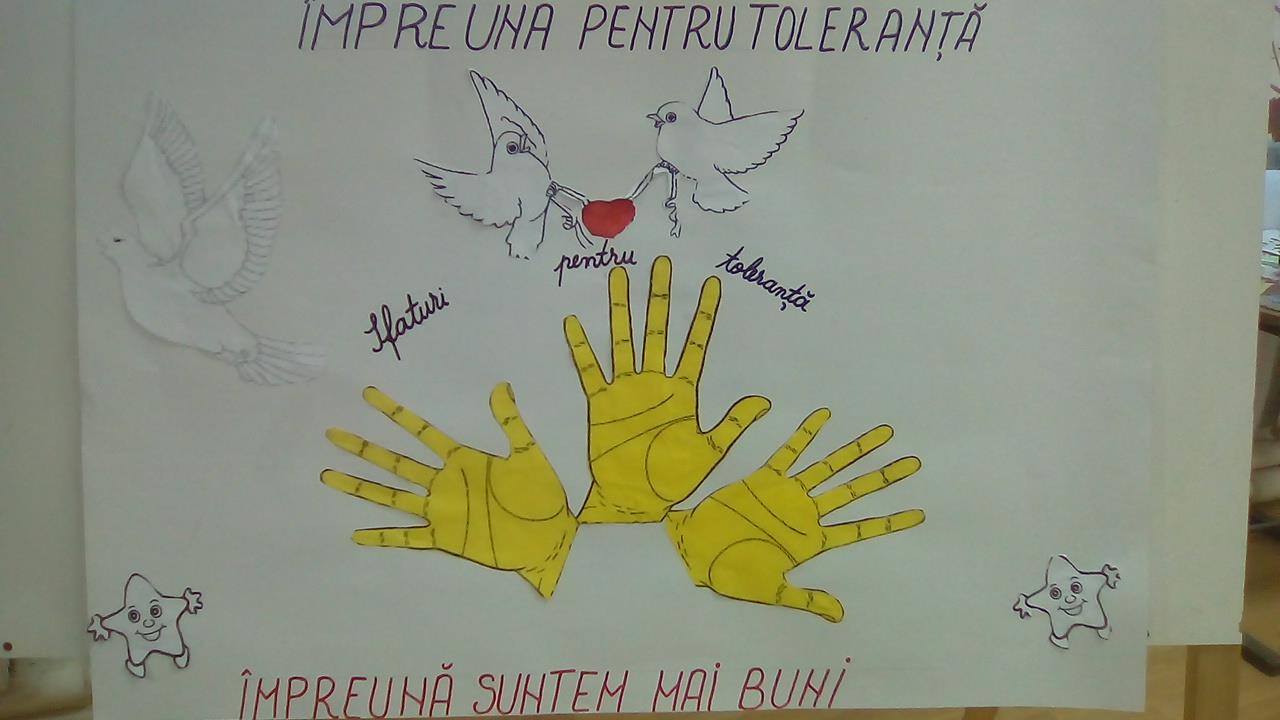 ÎMPREUNA PENTRU TOLERANȚĂ
Sfaturi pentru toleranță
ÎMPREUNĂ SUNTEM MAI BUNI